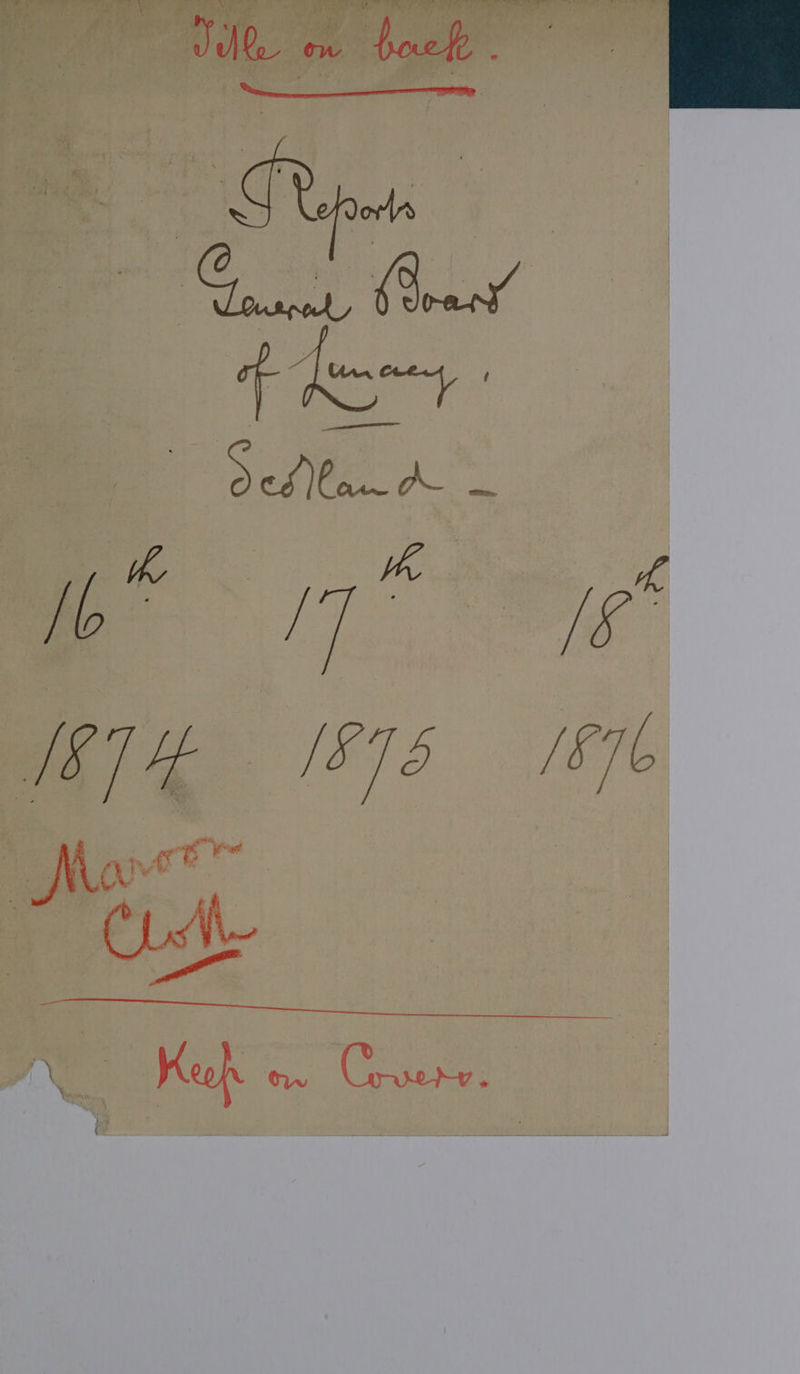 Title on back.
Reports
General Board
of Lunacy,
Scotland -
16th 17th 18th
1874 1875 1876
Maroon
Cloth
Keep on Covers.